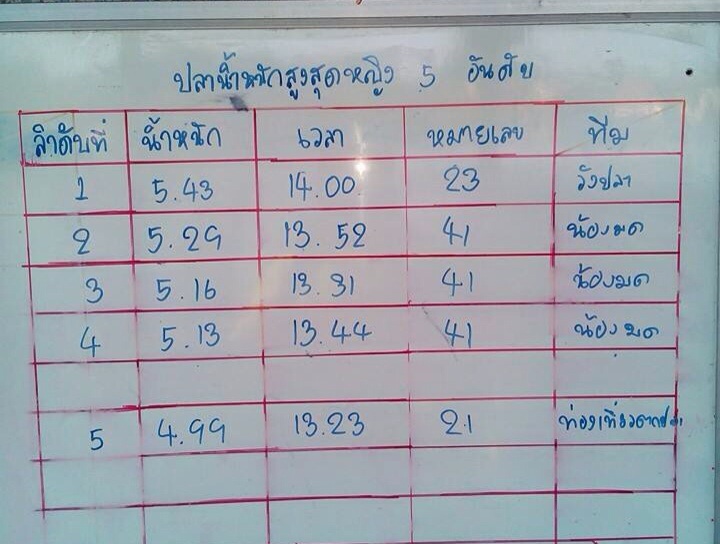 ปลาน้ำหนักสูงสุดหญิง 5 อันดับ
ลำดับที่ น้ำหนัก เวลา หมายเลข ทีม
1 5.43 14.00 23 วังปลา
2 5.29 13.52 41 น้องมด
3 5.16 13.31 41 น้องมด
4 5.13 13.44 41 น้องมด
5 4.99 13.23 21